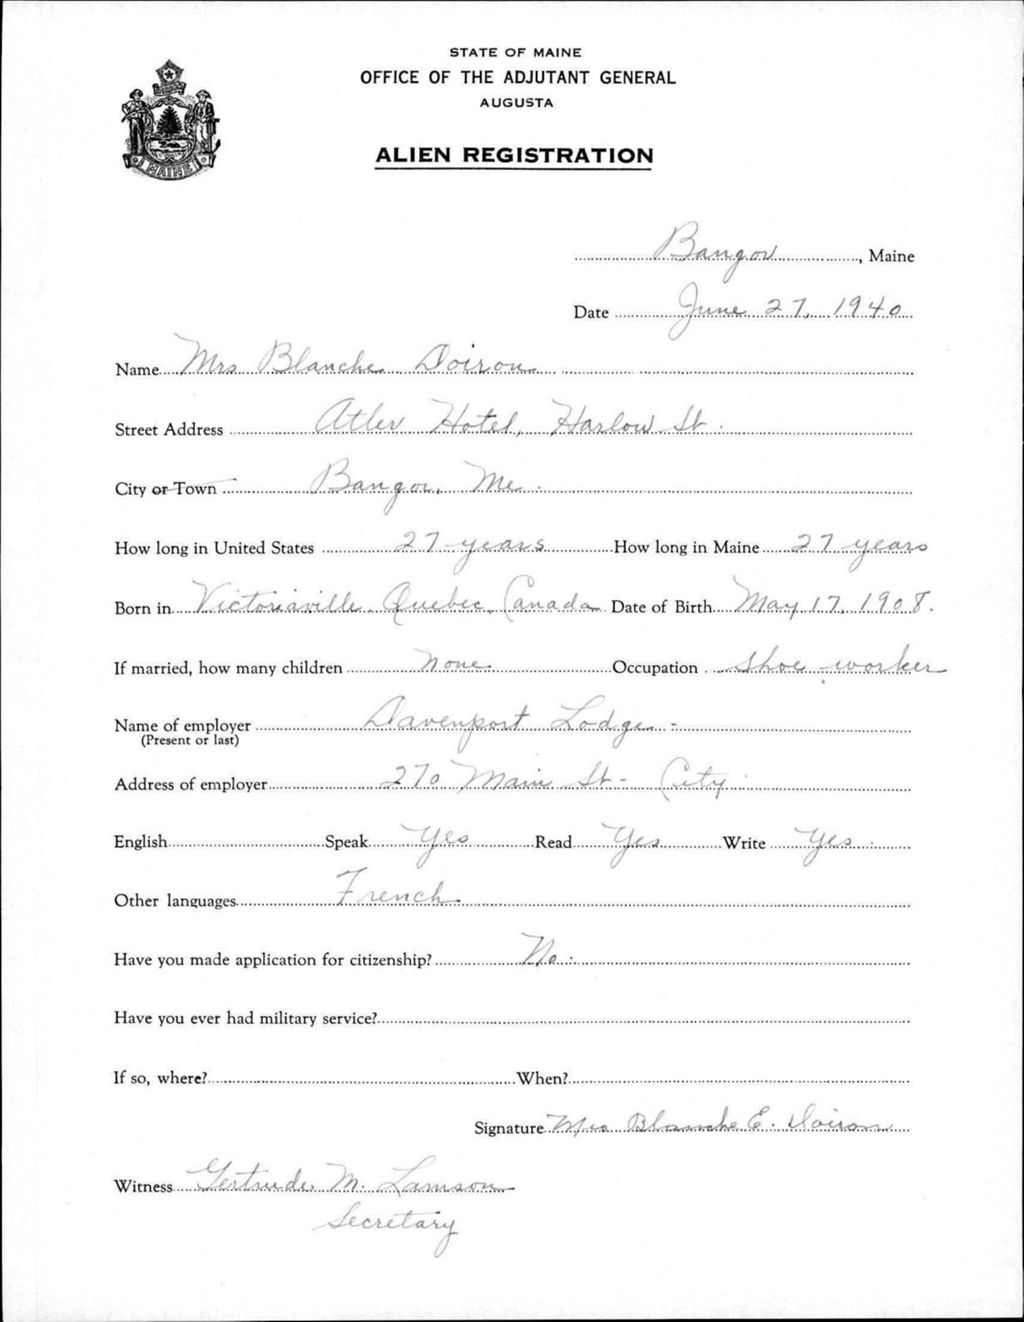 STATE OF MAINE
OFFICE OF THE ADJUTANT GENERAL
AUGUSTA
ALIEN REGISTRATION
MAINE
Bangor, Maine
Date June 27, 1940
Name Mrs Blanche Doiron
Street Address Atler Hotel, Harlow St.
City or Town Bangor, Me.
How long in United States 27 years How long in Maine 27 years
Born in Victoriaville Quebec, Canada Date of Birth May 17, 1908.
If married, how many children None Occupation Shoe worker
Name of employer Davenport Lodge -
(Present or last)
Address of employer 270 Main St - City.
English Speak Yes Read Yes Write Yes.
Other languages French
Have you made application for citizenship? No.
Have you ever had military service?
If so, where? When?
Signature Mrs Blanche E. Doiron
Witness Gertrude M. Lamson
Secretary